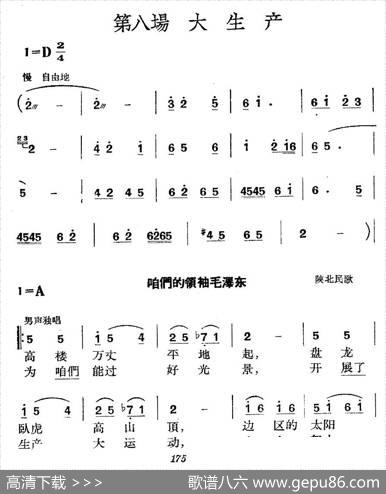 第八場 大 生 产
1=D 2/4
慢 自由地
( 2 - | 2 - | 3 2 5 | 6 1 . | 6 1 2 3 |
2 - | 4 2 1 | 6 1 | 1 2 16 | 6 5 . |
5 - | 4 2 4 5 | 6 2 6 5 | 4545 6 1 | 5 - |
4545 6 2 | 6 2 6265 | #4 5 6 5 | 2 - | )
咱們的領袖毛澤东
1=A 陝北民歌
男声独唱
5 5 | 1 5 4 | 5 2 b7 1 | 2 - | 5 5 |
高 楼 万丈 平 地 起， 盘 龙
为 咱們 能过 好 光 景， 开 展了
1 5 4 | 5 2 b7 1 | 2 - | 1 6 1 6 | 1 6 5 |
臥虎 高 山 頂， 边 区的 太阳
生产 大 运动，
175
高清下载 >>> 歌谱八六 www.gepu86.com